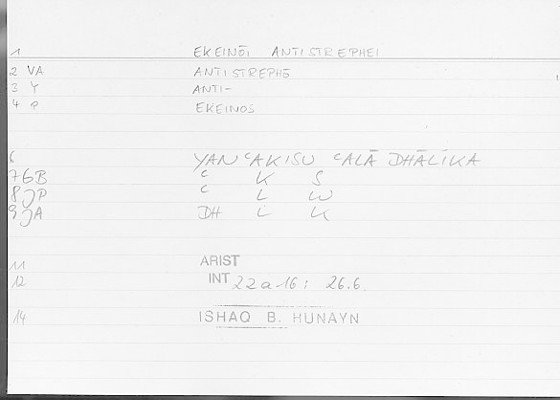 1 EKEINŌI ANTISTREPHEI
2 VA ANTISTREPHŌ
3 Y ANTI-
4 P EKEINOS
6 YANᶜAKISU ᶜALĀ DHĀLIKA
7 GB ᶜ K S
8 JP ᶜ L W
9 JA DH L K
11 ARIST
12 INT 22a16; 26.6.
14 ISHAQ B. HUNAYN